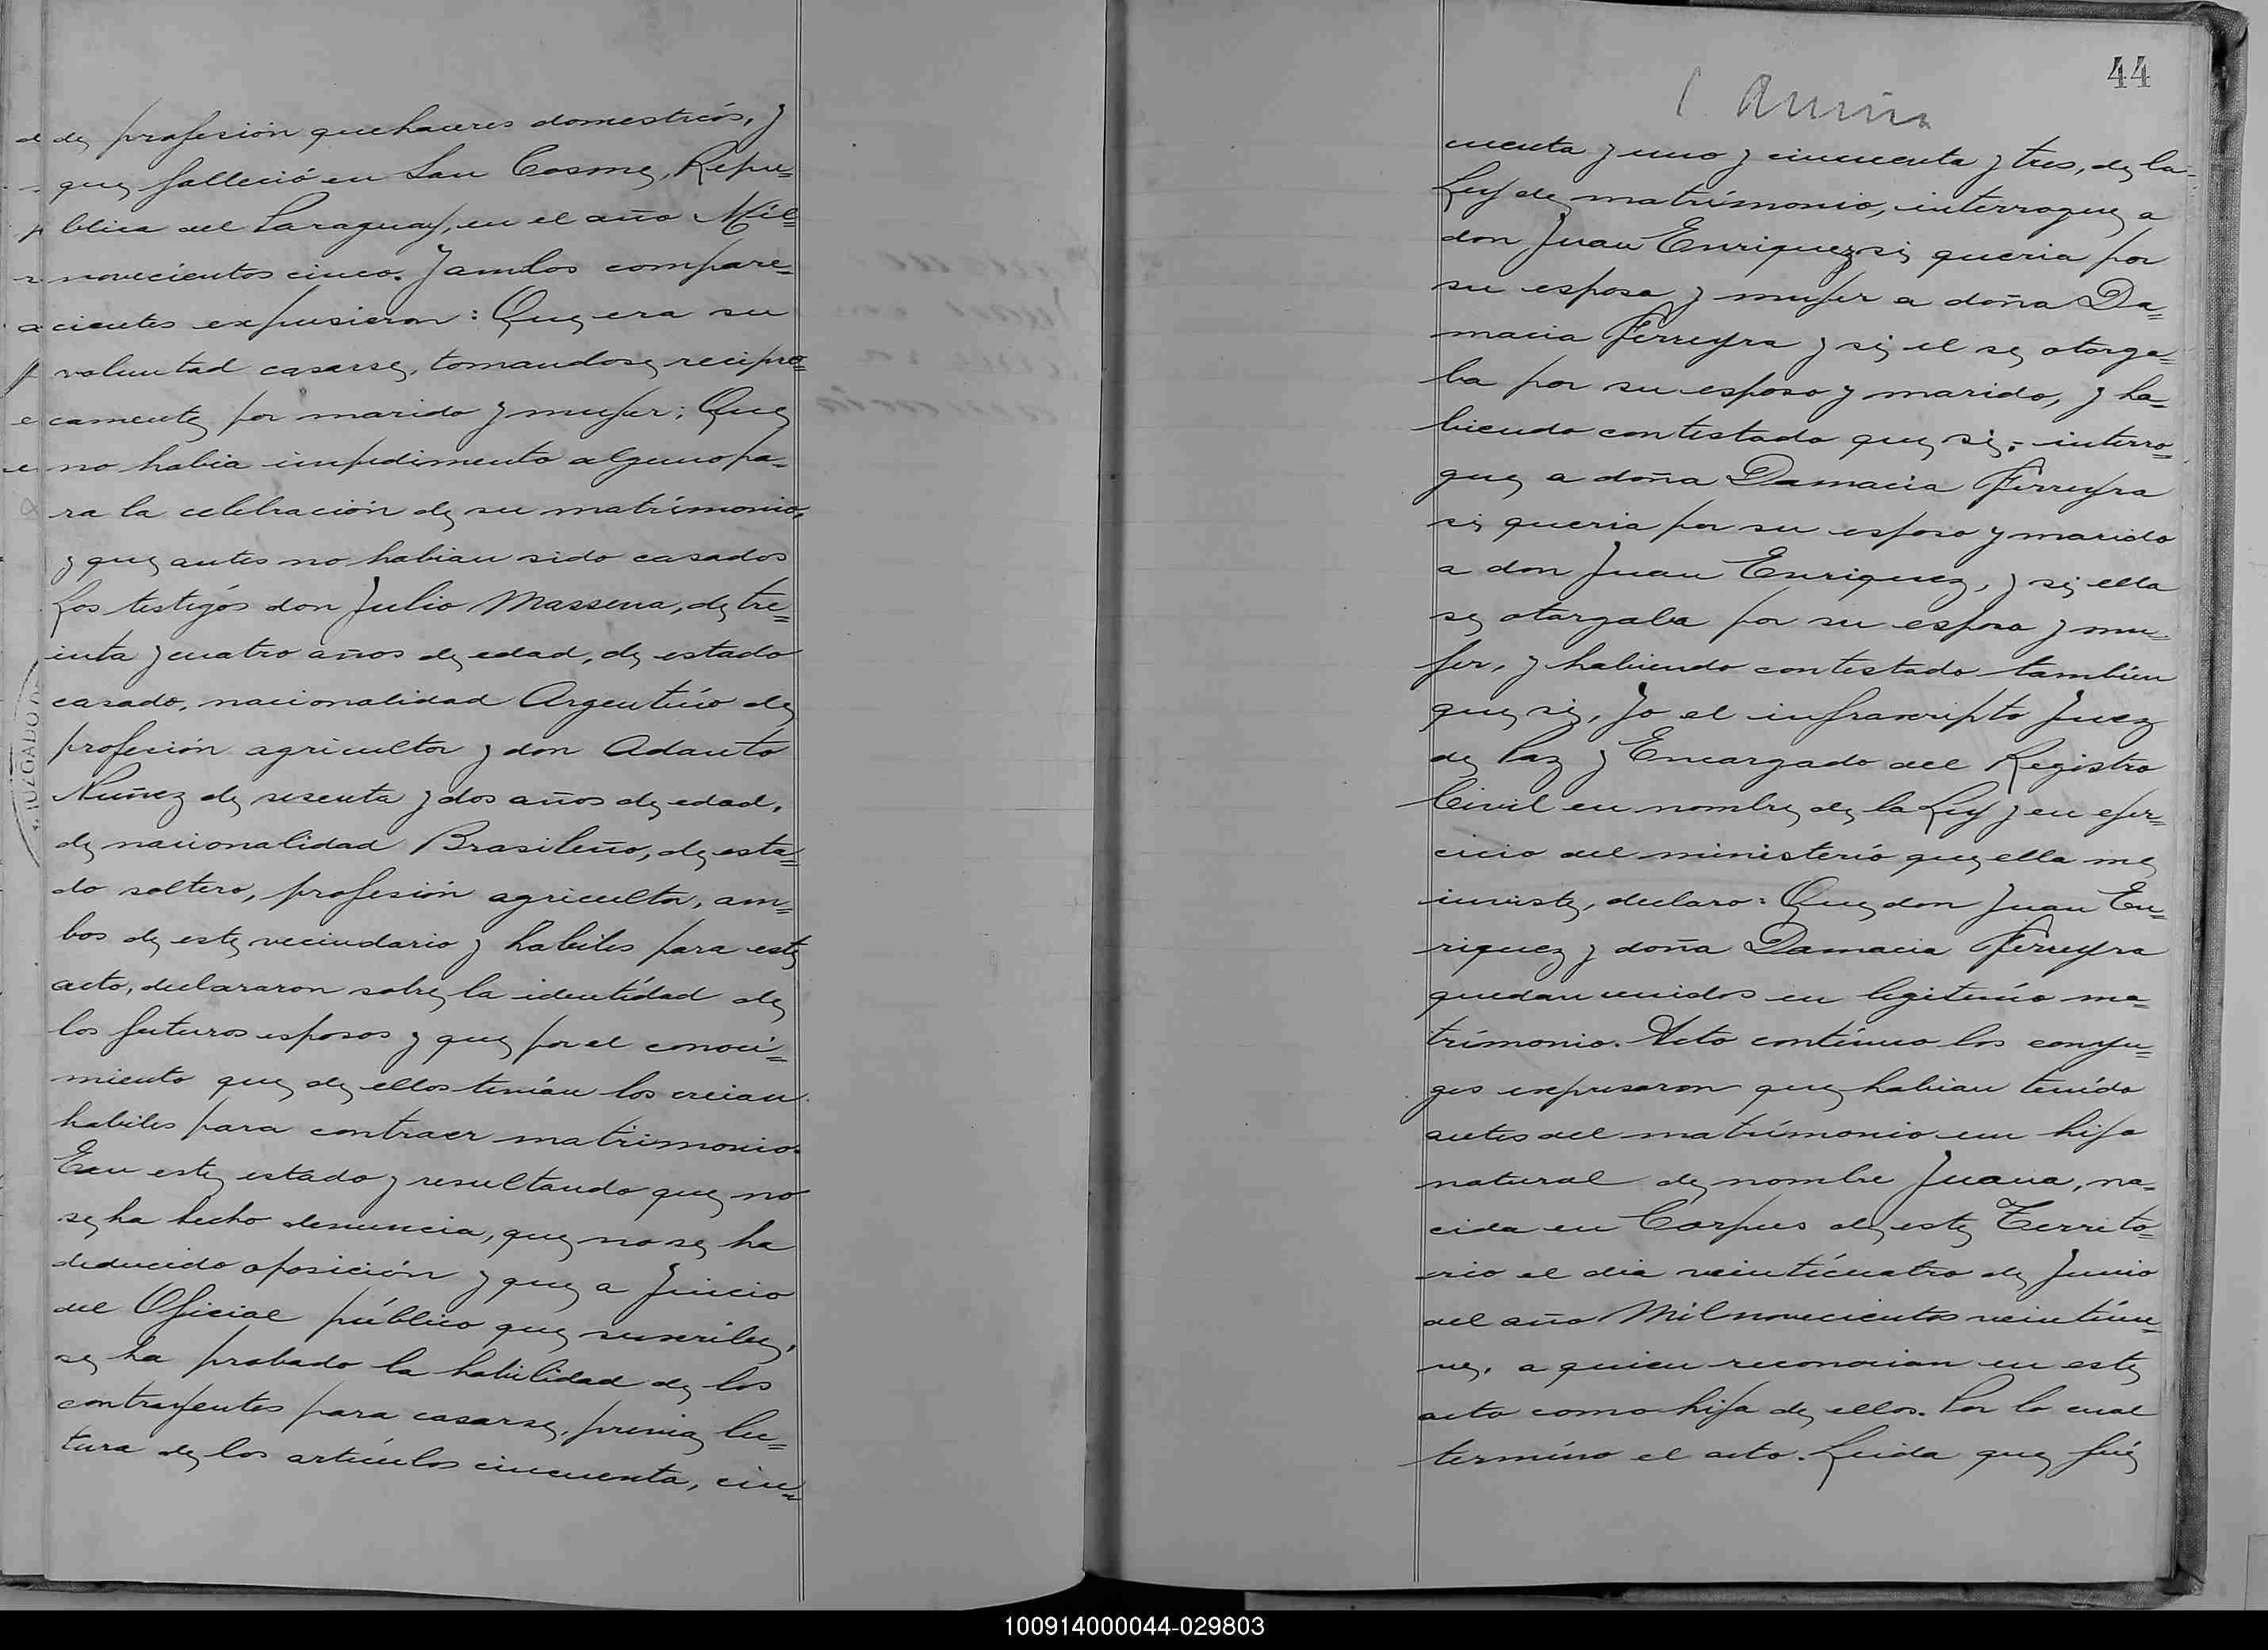 de profesión quehaceres domesticós, y
que falleció en San Cosme, Repu=
blica del Paraguay, en el año Mil=
novecientos cinco. Y ambos compare=
cientes expusieron: Que era su
voluntad casarse, tomandose recipro=
camente por marido y mujer; Que
no habia impedimento alguno pa=
ra la celebración de su matrímonio,
y que antes no habian sido casados
Los testigós don Julio Massena, de tre=
inta y cuatro años de edad, de estado
casado, nacionalidad Argentíno de
profesión agricultor y don Adauto
Nuñez de sesenta y dos años de edad,
de nacionalidad Brasileño, de esta=
do soltero, profesión agricultor, am=
bos de este vecindario y habiles para este
acto, declararon sobre la identídad de
los futuros esposos y que por el conoci=
miento que de ellos tenían los creian
habiles para contraer matrimonio.
En este estado y resultando que no
se ha hecho denuncia, que no se ha
deducido oposición y que a juicio
del Oficial público que suscribe,
se ha probado la habilidad de los
contrayentes para casarse, previa lec=
tura de los artículos cincuenta, cin=
44
cuenta y uno y cincuenta y tres, de la
Ley de matrímonio, interrogue a
don Juan Enriquez si queria por
su esposa y mujer a doña Da=
macia Ferreyra y si el se otorga=
ba por su esposo y marido, y ha=
biendo contestado que si; interro=
gue a doña Damacia Ferreyra
si queria por su esposo y marido
a don Juan Enriquez, y si ella
se otorgaba por su esposa y mu=
jer, y habiendo contestado tambien
que si, Yo el infrascripto Juez
de Paz y Encargado del Registro
Civil en nombre de la Ley y en ejer=
cicio del ministerió que ella me
inviste, declaro: Que don Juan En=
riquez y doña Damacia Ferreyra
quedan unidos en legitímo ma=
trímonio. Acto contínuo los conyu=
ges expresaron que habian tenído
antes del matrímonio un hija
natural de nombre Juana, na=
cida en Corpus de este Territo=
rio el dia veintícuatro de Junio
del año Mil novecientos veintínue=
ve, a quien reconocian en este
acto como hija de ellos. Por lo cual
termíno el acto. Leida que fué
100914000044-029803